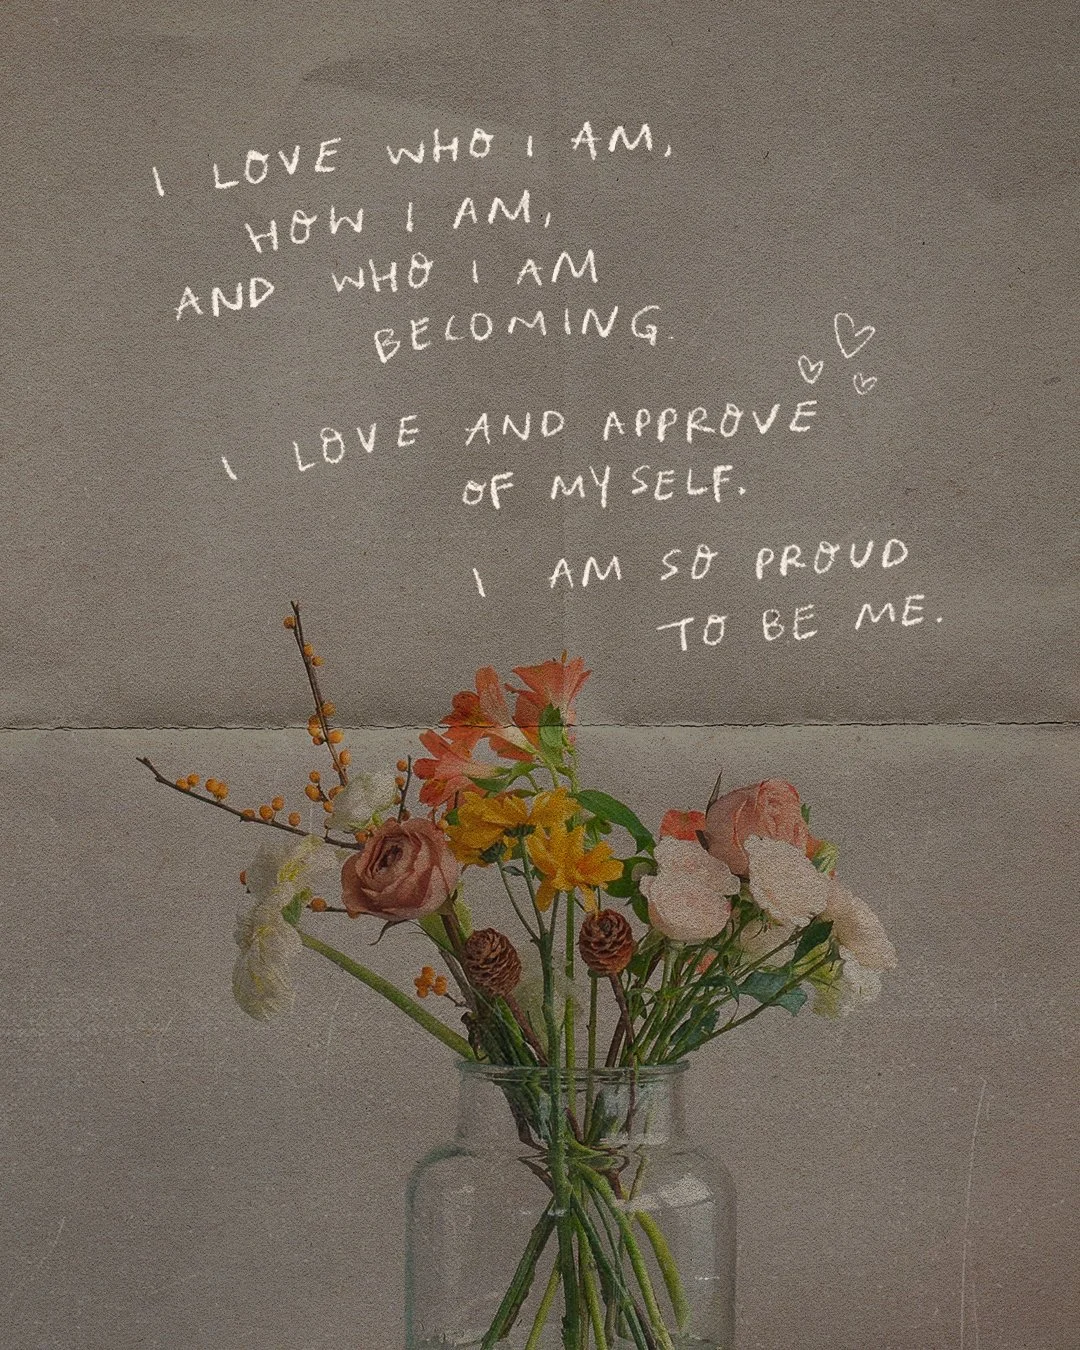 I LOVE WHO I AM,
HOW I AM,
AND WHO I AM
BECOMING.
I LOVE AND APPROVE
OF MYSELF.
I AM SO PROUD
TO BE ME.